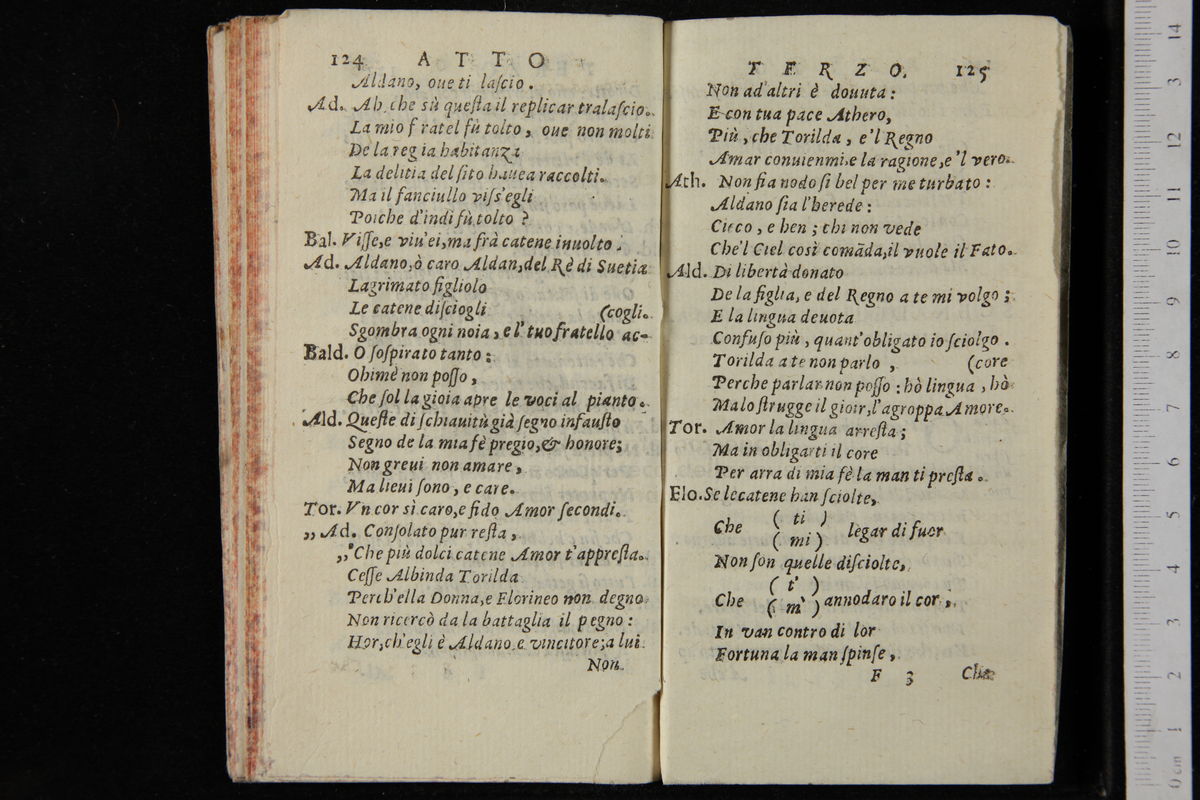 124 ATTO
Aldano, oue ti laſcio.
Ad. Ah che sù queſta il replicar tralaſcio.
La mio fratel fù tolto, oue non molti
De la regia habitanza
La delitia del ſito hauea raccolti.
Ma il fanciullo viſs'egli
Poiche d'indi fù tolto?
Bal. Viſſe, e viu'ei, ma frà catene inuolto.
Ad. Aldano, ò caro Aldan, del Rè di Suetia
Lagrimato figliolo
Le catene diſciogli (cogli.
Sgombra ogni noia, e l'tuo fratello ac-
Bald. O ſoſpirato tanto:
Ohimè non poſſo,
Che ſol la gioia apre le voci al pianto.
Ald. Queſte di ſchiauitù già ſegno infauſto
Segno de la mia fè pregio, & honore;
Non greui non amare,
Ma lieui ſono, e care.
Tor. Vn cor sì caro, e fido Amor ſecondi.
„ Ad. Conſolato pur reſta,
„ Che più dolci catene Amor t'appreſta.
Ceſſe Albinda Torilda
Perch'ella Donna, e Florineo non degno
Non ricercò da la battaglia il pegno:
Hor, ch'egli è Aldano, e vincitore; a lui
Non
TERZO. 125
Non ad altri è douuta:
E con tua pace Athero,
Più, che Torilda, e'l Regno
Amar conuienmi, e la ragione, e'l vero.
Ath. Non fia nodo ſi bel per me turbato:
Aldano ſia l'herede:
Cieco, e ben; chi non vede
Che'l Ciel così comãda, il vuole il Fato.
Ald. Di libertà donato
De la figlia, e del Regno a te mi volgo;
E la lingua deuota
Confuſo più, quant'obligato io ſciolgo.
Torilda a te non parlo, (core
Perche parlar non poſſo: hò lingua, hò
Ma lo ſtrugge il gioir, l'agroppa Amore.
Tor. Amor la lingua arreſta;
Ma in obligarti il core
Per arra di mia fè la man ti preſta.
Flo. Se le catene han ſciolte,
Che ( ti ) ( mi ) legar di fuor
Non ſon quelle diſciolte,
Che ( t' ) ( m' ) annodaro il cor,
In van contro di lor
Fortuna la man ſpinſe,
F 3